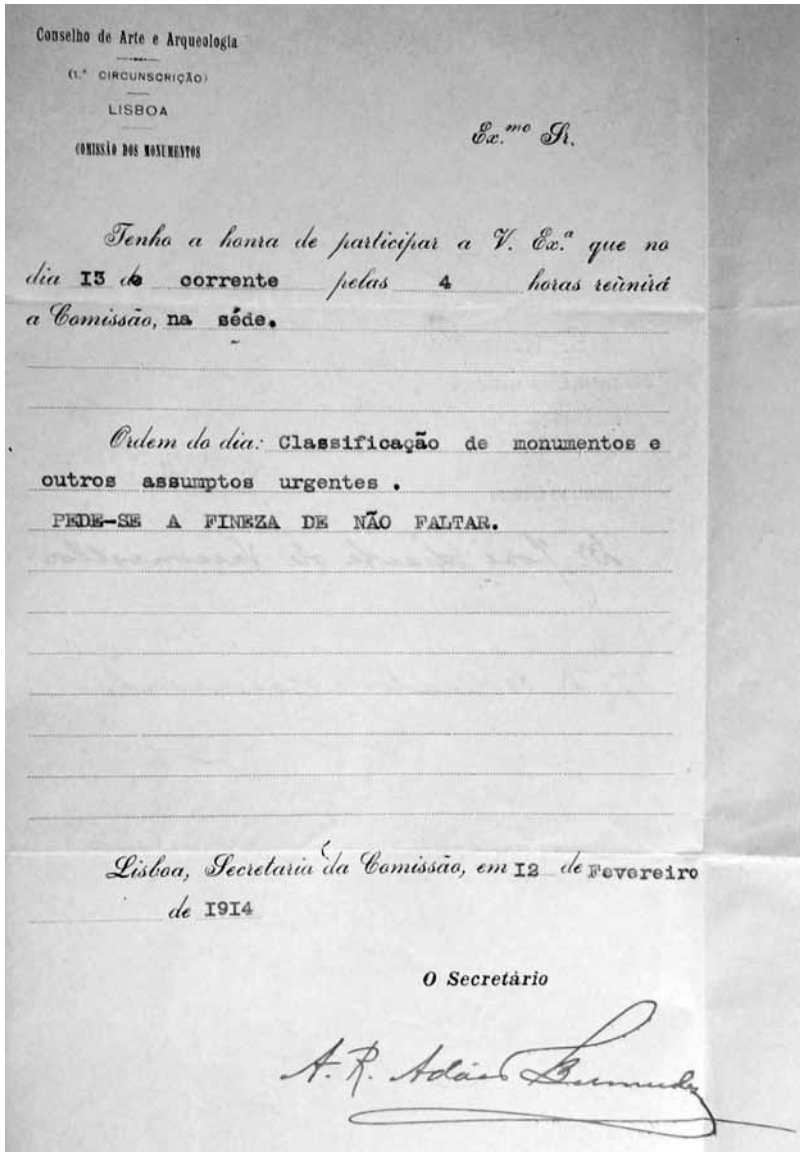 Conselho de Arte e Arqueologia
(1.ª CIRCUNSCRIÇÃO)
LISBOA
COMISSÃO DOS MONUMENTOS
Ex.mo Sr.
Tenho a honra de participar a V. Ex.ª que no
dia I3 do corrente pelas 4 horas reùnirá
a Comissão, na séde.
Ordem do dia: Classificação de monumentos e
outros assumptos urgentes .
PEDE-SE A FINEZA DE NÃO FALTAR.
Lisboa, Secretaria da Comissão, em I2 de Fevereiro
de I9I4
O Secretário
A. R. Adães Bermudes